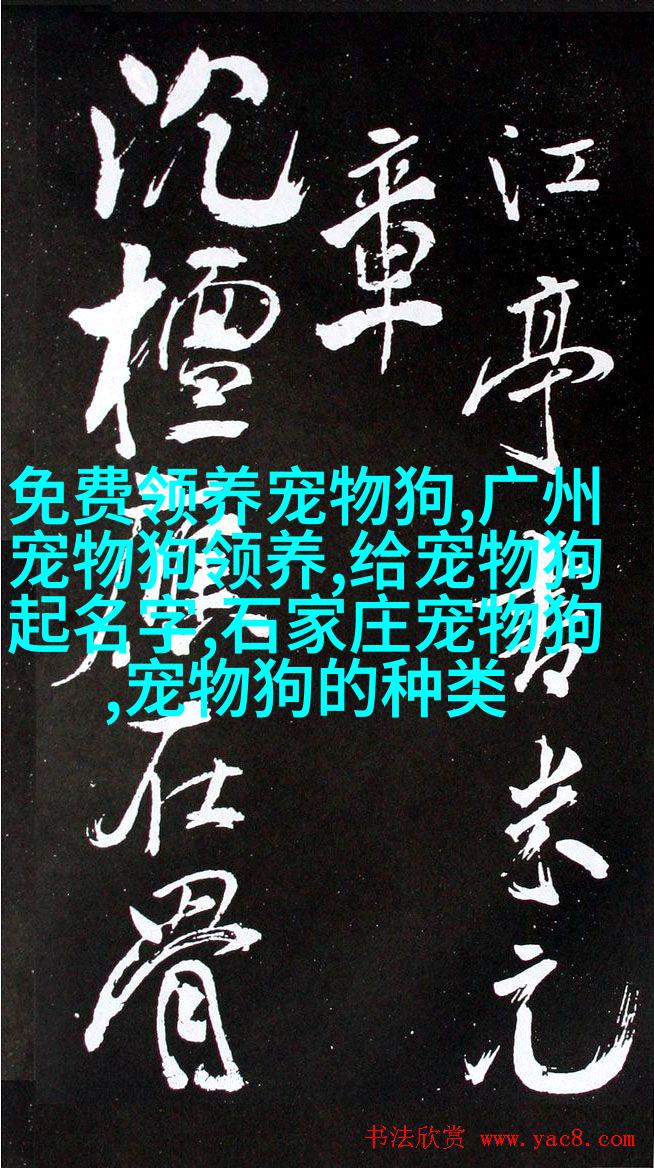 江亭書米元
章
沉檀雖在骨
免费领养宠物狗,广州
宠物狗领养,给宠物狗
起名字,石家庄宠物狗
,宠物狗的种类
书法欣赏 www.yac8.com